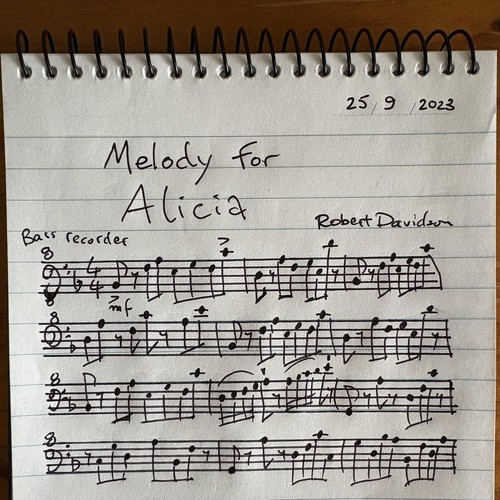 25/9/2023
Melody for
Alicia
Robert Davidson
Bass recorder
8
4
4
mf
8
8
8